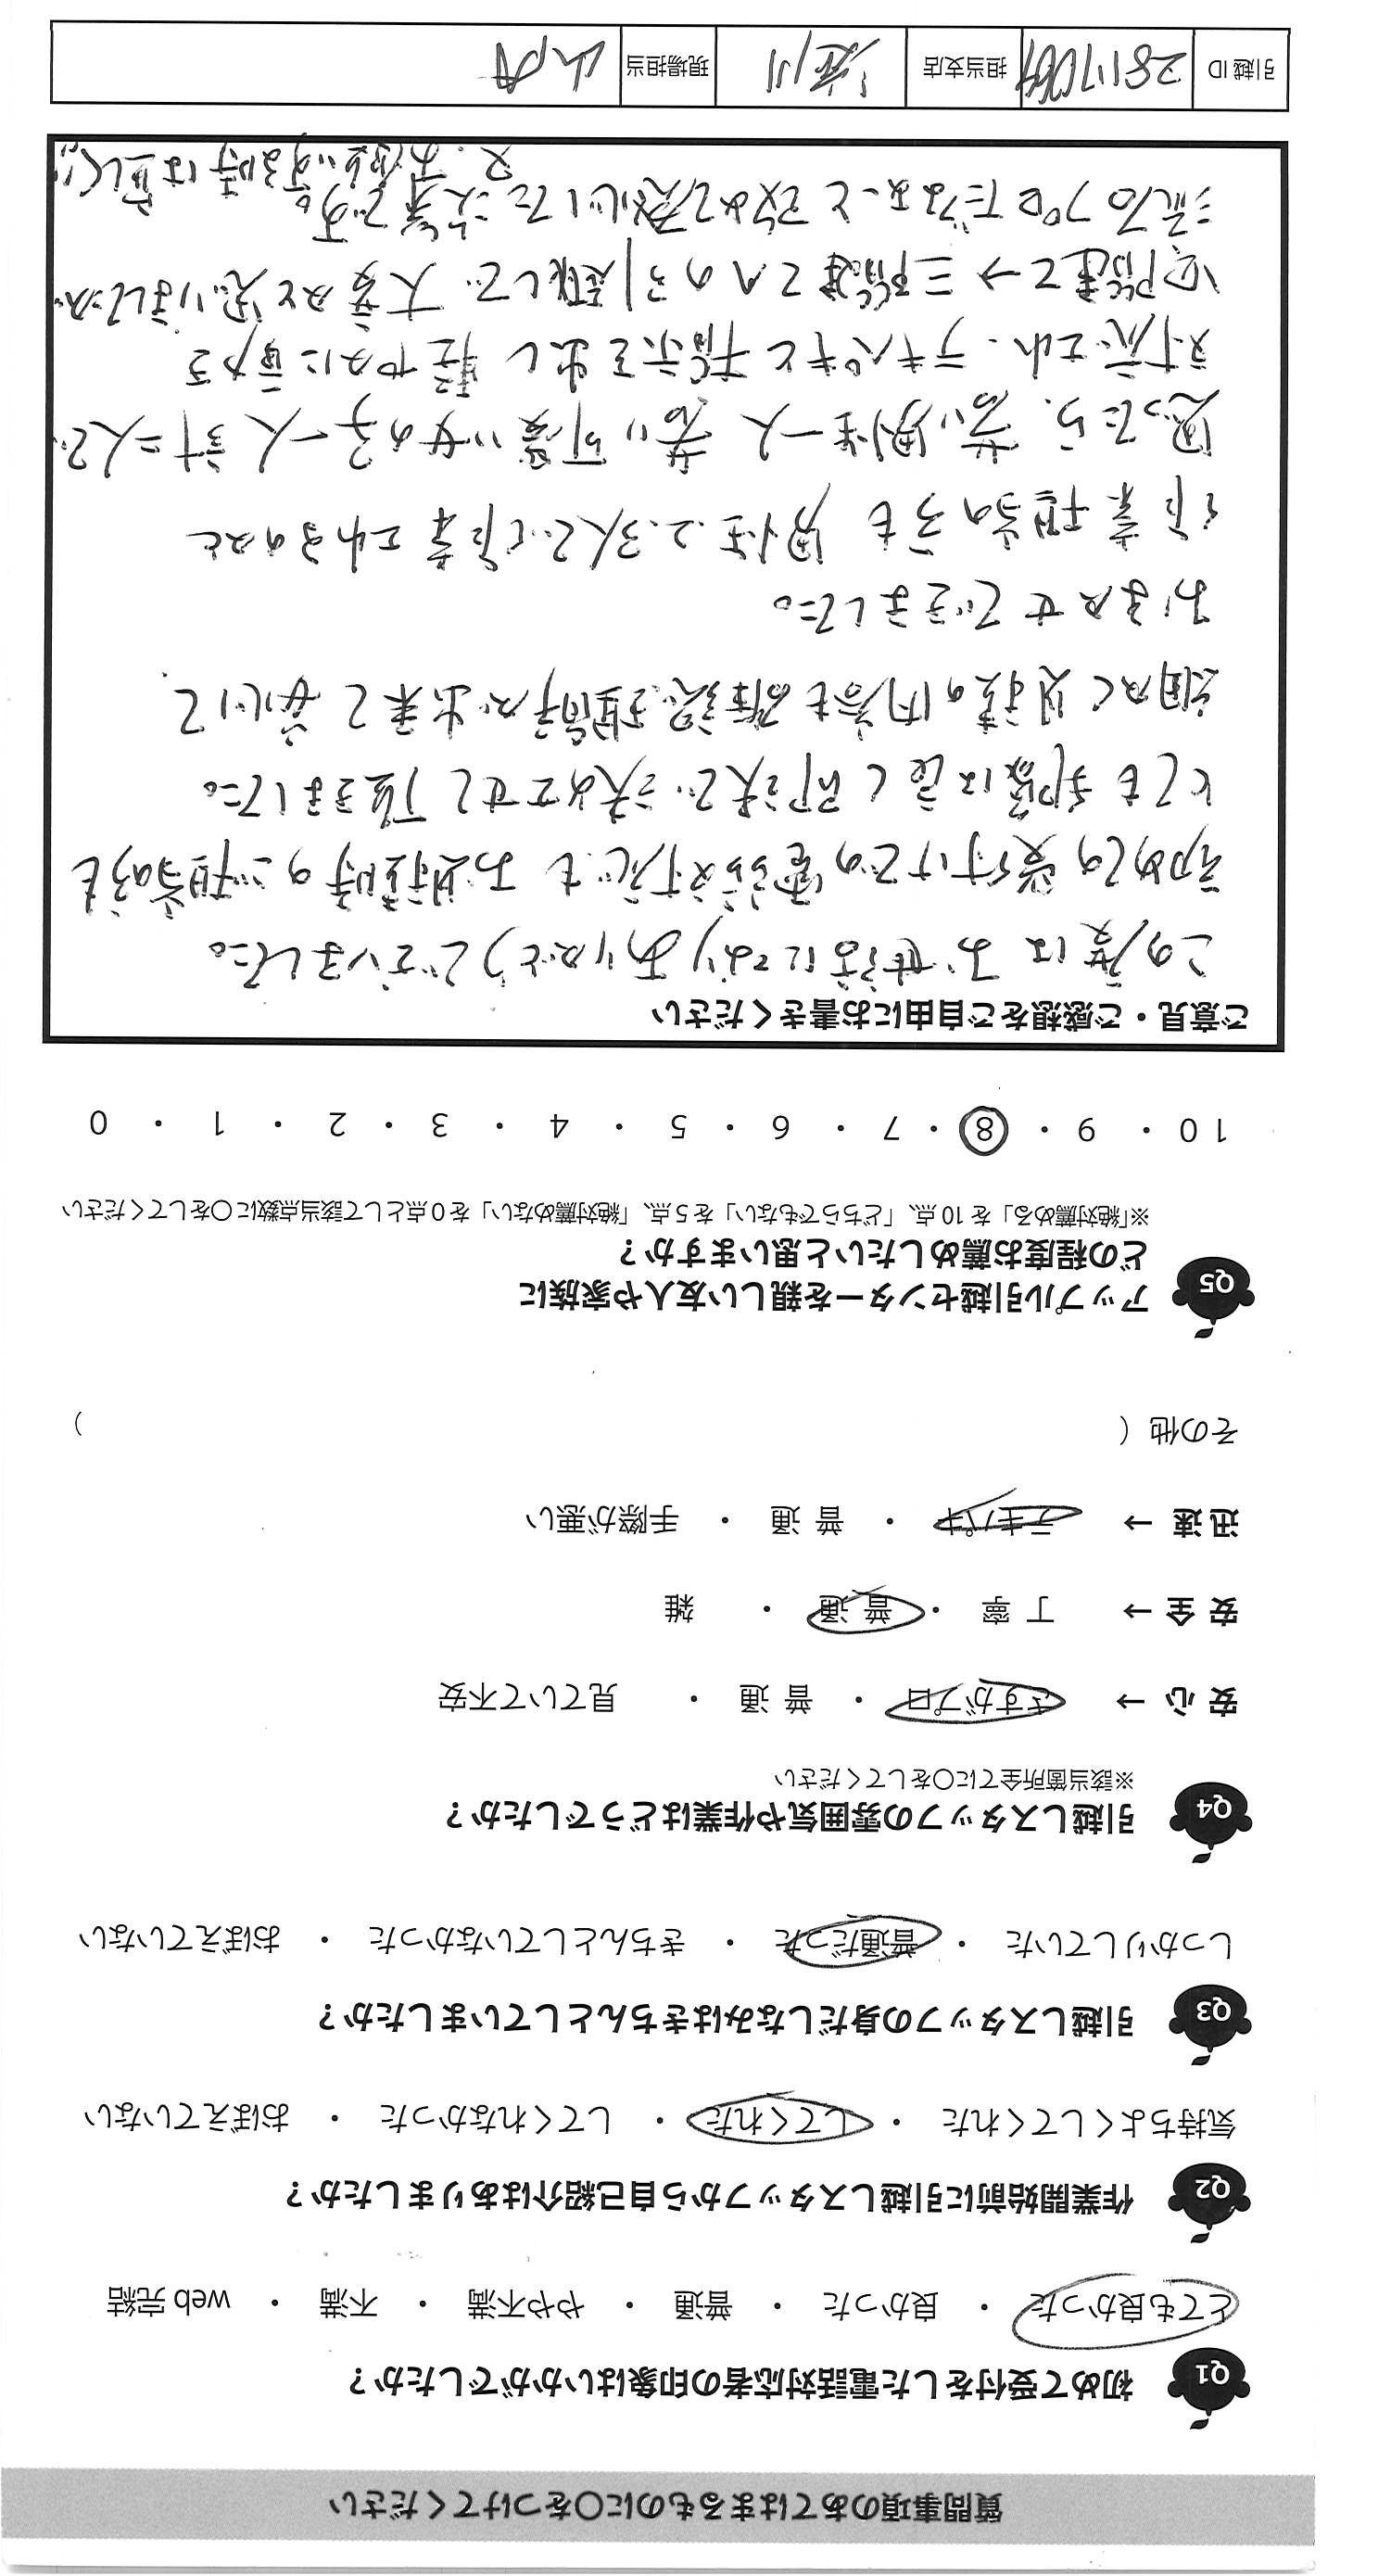 質問事項のあてはまるものに○をつけてください
Q1 初めて受付をした電話対応者の印象はいかがでしたか？
とても良かった ・ 良かった ・ 普通 ・ やや不満 ・ 不満 ・ web 完結
Q2 作業開始前に引越しスタッフから自己紹介はありましたか？
気持ちよくしてくれた ・ してくれた ・ してくれなかった ・ おぼえていない
Q3 引越しスタッフの身だしなみはきちんとしていましたか？
しっかりしていた ・ 普通だった ・ きちんとしていなかった ・ おぼえていない
Q4 引越しスタッフの雰囲気や作業はどうでしたか？
※該当箇所全てに○をしてください
安 心 → さすがプロ ・ 普 通 ・ 見ていて不安
安 全 → 丁 寧 ・ 普 通 ・ 雑
迅 速 → テキパキ ・ 普 通 ・ 手際が悪い
その他（ ）
Q5 アップル引越センターを親しい友人や家族に
どの程度お薦めしたいと思いますか？
※「絶対薦める」を 10 点、「どちらでもない」を 5 点、「絶対薦めない」を 0 点として該当点数に○をしてください
10 ・ 9 ・ 8 ・ 7 ・ 6 ・ 5 ・ 4 ・ 3 ・ 2 ・ 1 ・ 0
ご意見・ご感想をご自由にお書きください
この度は お世話になりありがとうございました。
初めての受付けでの電話対応も お見積時のご担当の方も
とても印象は良く即決で決めさせて頂きました。
細かく見積の内容も確認、理解が出来て安心して
おまかせできました。
作業担当の方も 男性2、3人で作業されるのかと
思ったら、若い男性一人 若い可愛い女の子一人 計二人で
対応され、テキパキと指示を出し 軽やかに動かる
二階建て→三階建てへの引越しで 大変かと思いましたが
流石プロだなぁーと改めて感心した次第です。
又、お使いする時は宜しく!!
引越 ID 担当支店 現場担当 山内